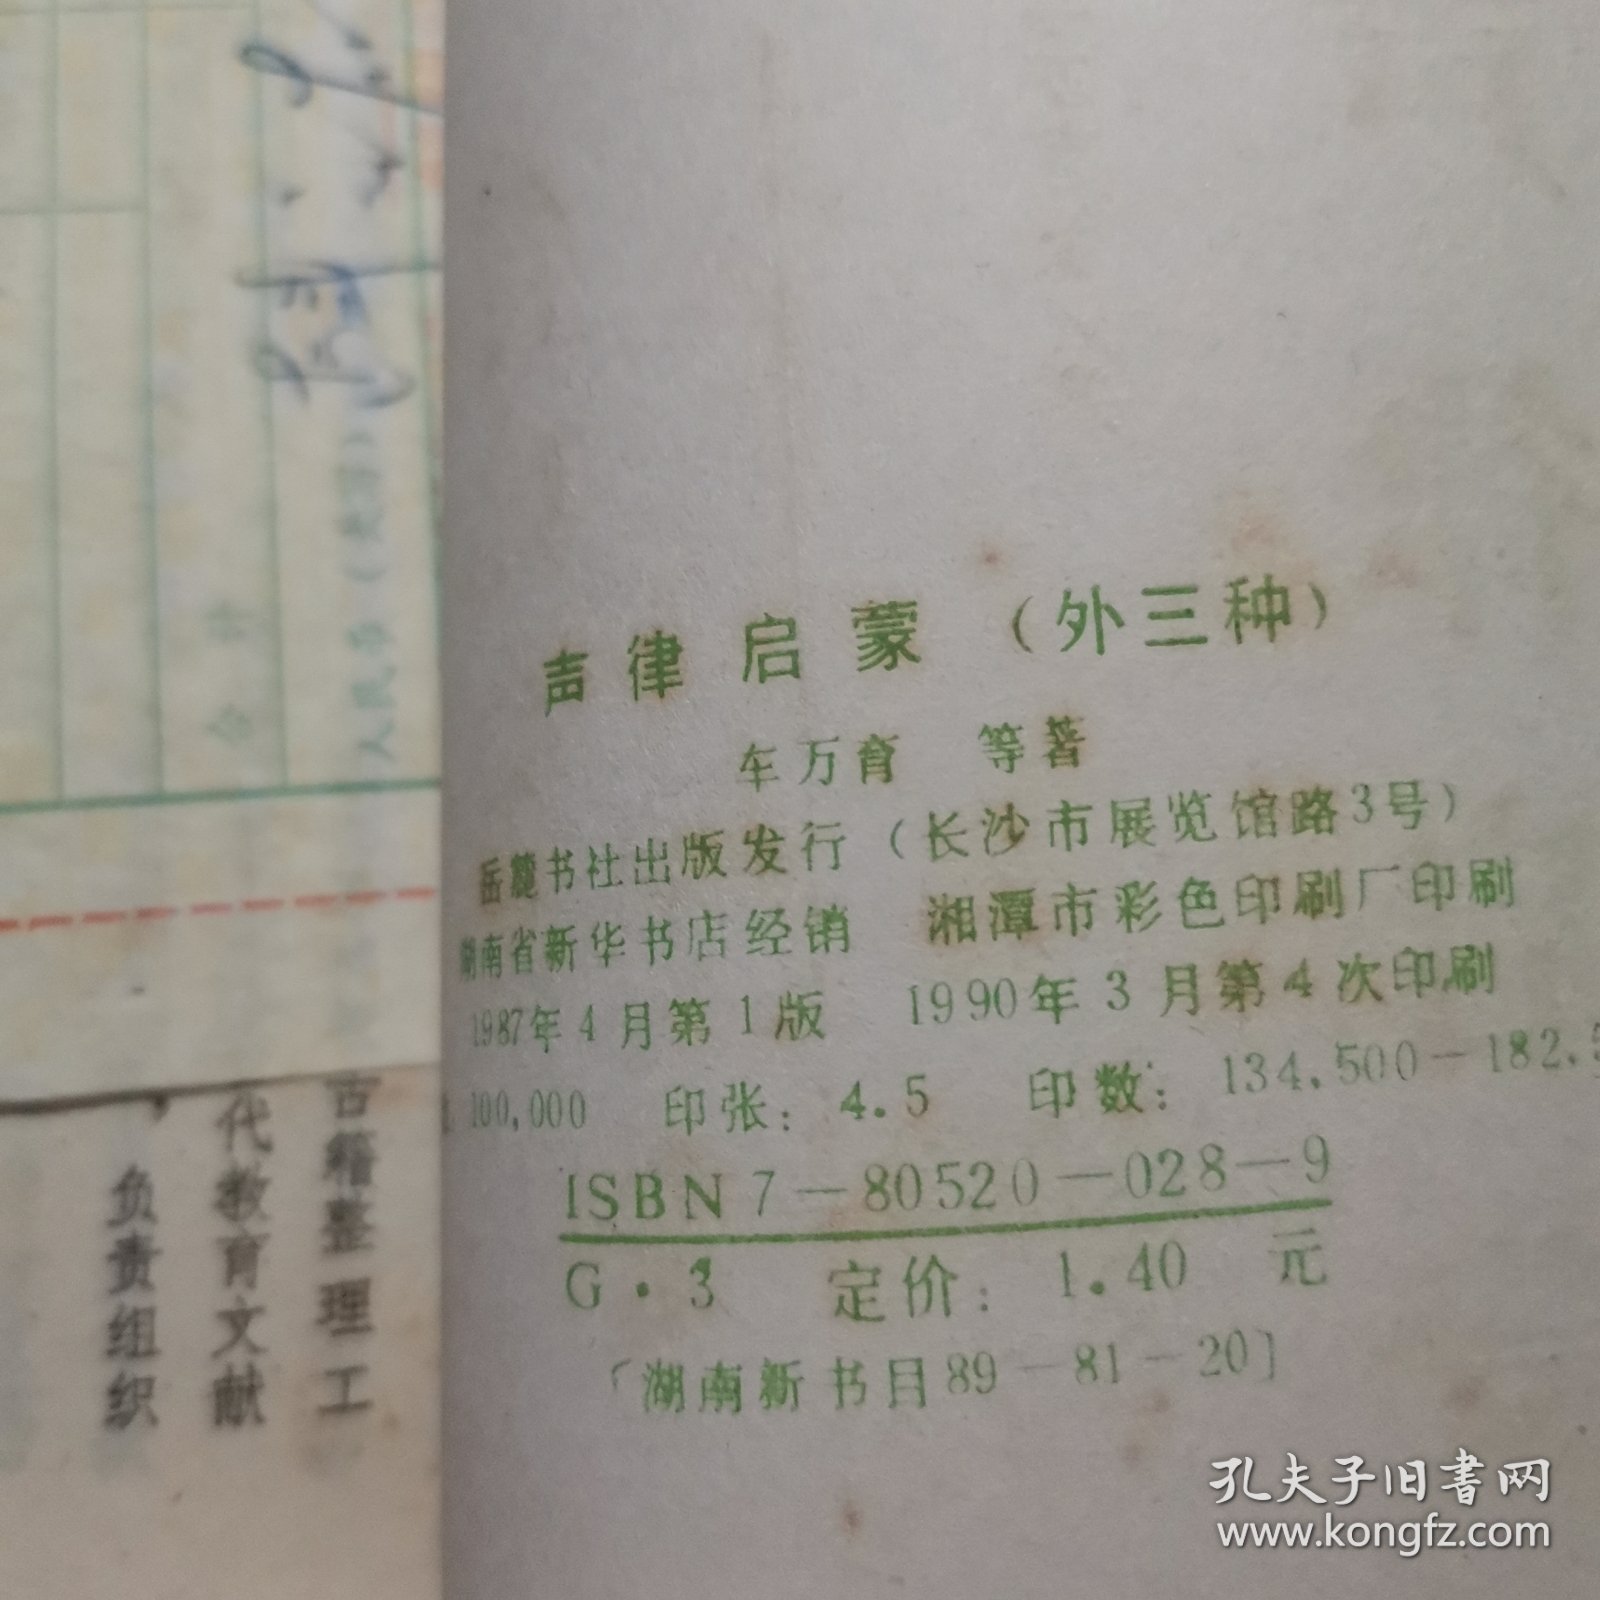 声律启蒙（外三种）
车万育 等著
岳麓书社出版发行（长沙市展览馆路3号）
湖南省新华书店经销 湘潭市彩色印刷厂印刷
1987年4月第1版 1990年3月第4次印刷
100,000 印张：4.5 印数：134.500－182.5
ISBN 7－80520－028－9
G·3 定价：1.40 元
〔湖南新书目89－81－20〕
古籍整理工
代教育文献
负责组织
合计
人民币（大写）
孔夫子旧书网
www.kongfz.com